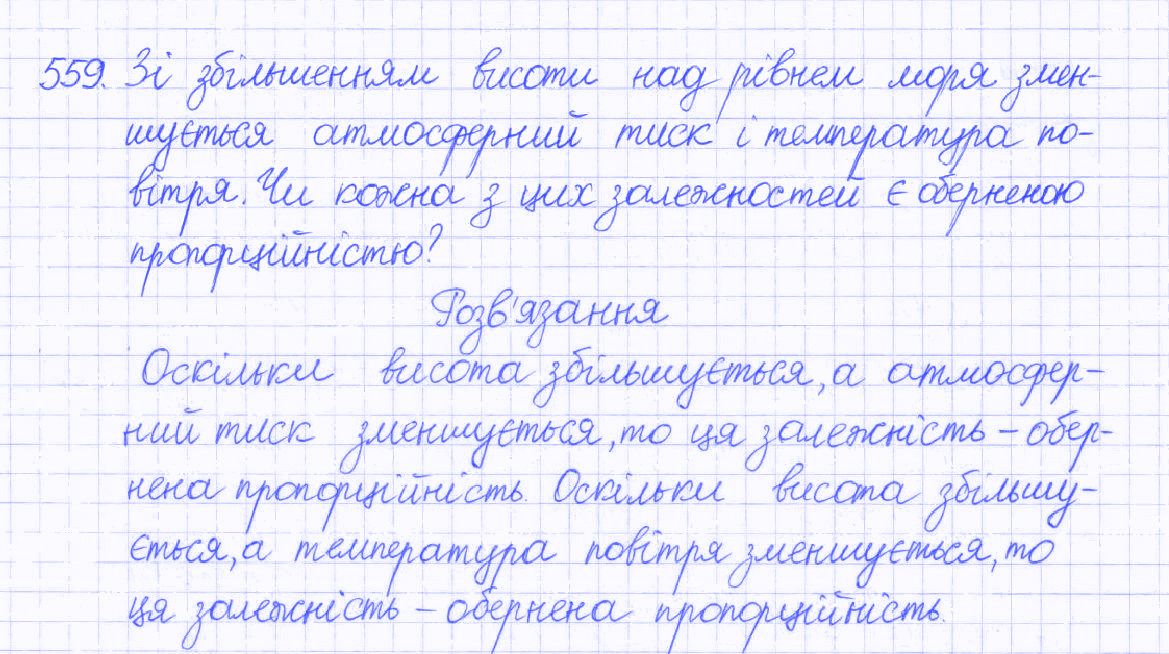 559. Зі збільшенням висоти над рівнем моря змен-
шується атмосферний тиск і температура по-
вітря. Чи кожна з цих залежностей є оберненою
пропорційністю?
Розв'язання
Оскільки висота збільшується, а атмосфер-
ний тиск зменшується, то ця залежність – обер-
нена пропорційність. Оскільки висота збільшу-
ється, а температура повітря зменшується, то
ця залежність – обернена пропорційність.